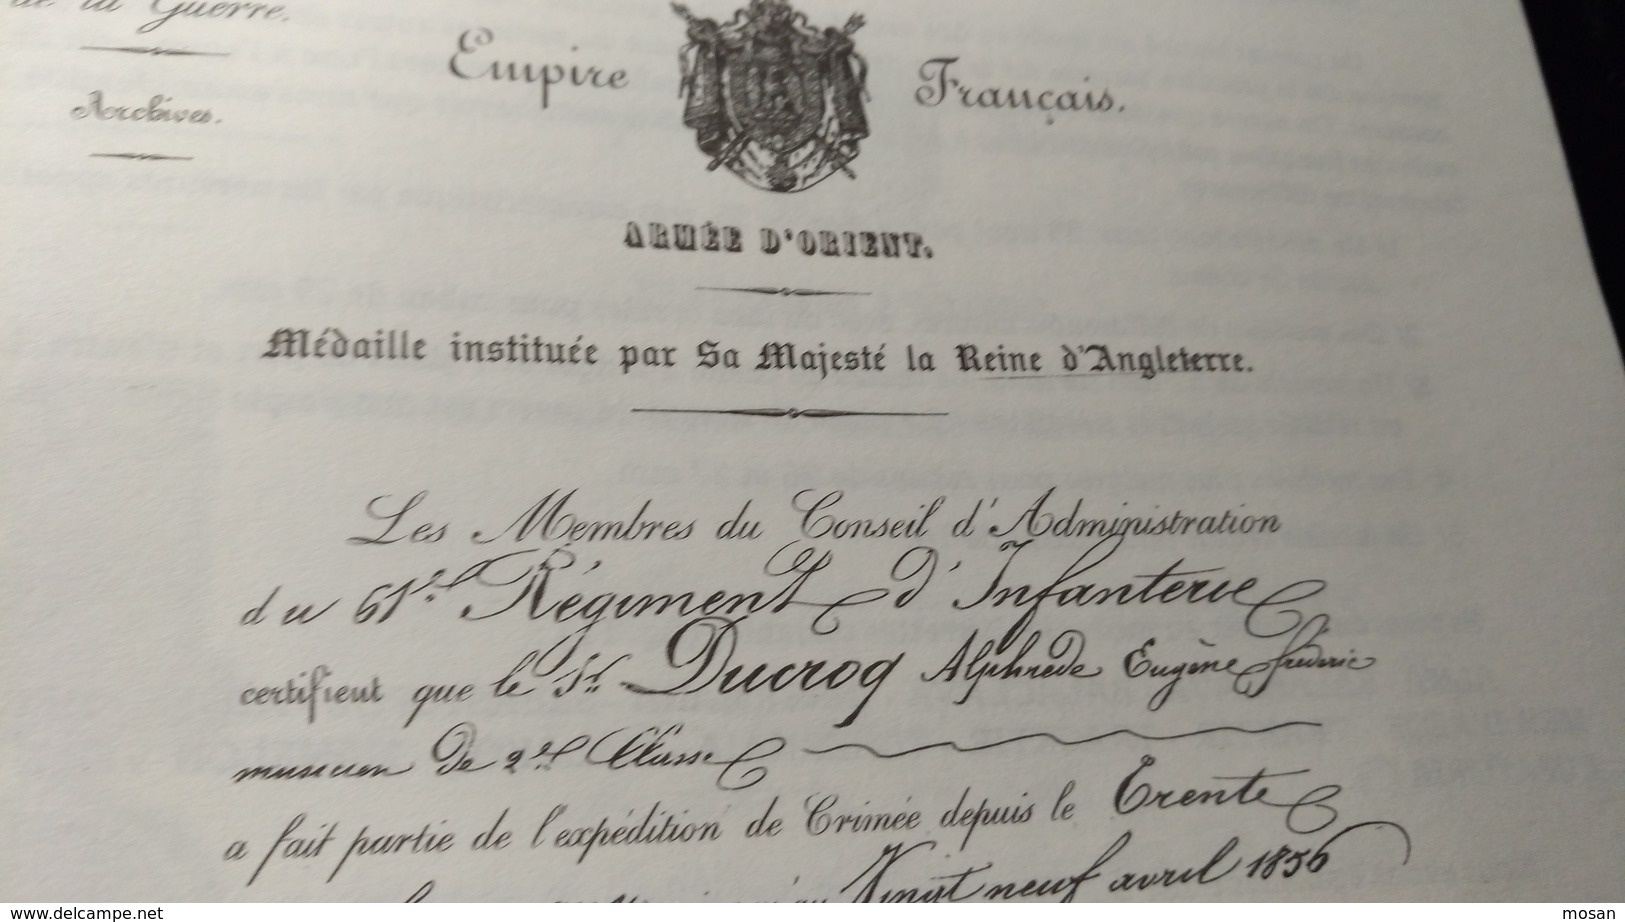 de la Guerre.
Archives.
Empire Français.
ARMÉE D'ORIENT.
Médaille instituée par Sa Majesté la Reine d'Angleterre.
Les Membres du Conseil d'Administration
du 61e Régiment d'Infanterie
certifient que le Sr Ducroq Alphrede Eugène Fréderic
musicien de 2e Classe
a fait partie de l'expédition de Crimée depuis le Trente
Vingt neuf avril 1856
www.delcampe.net
mosan